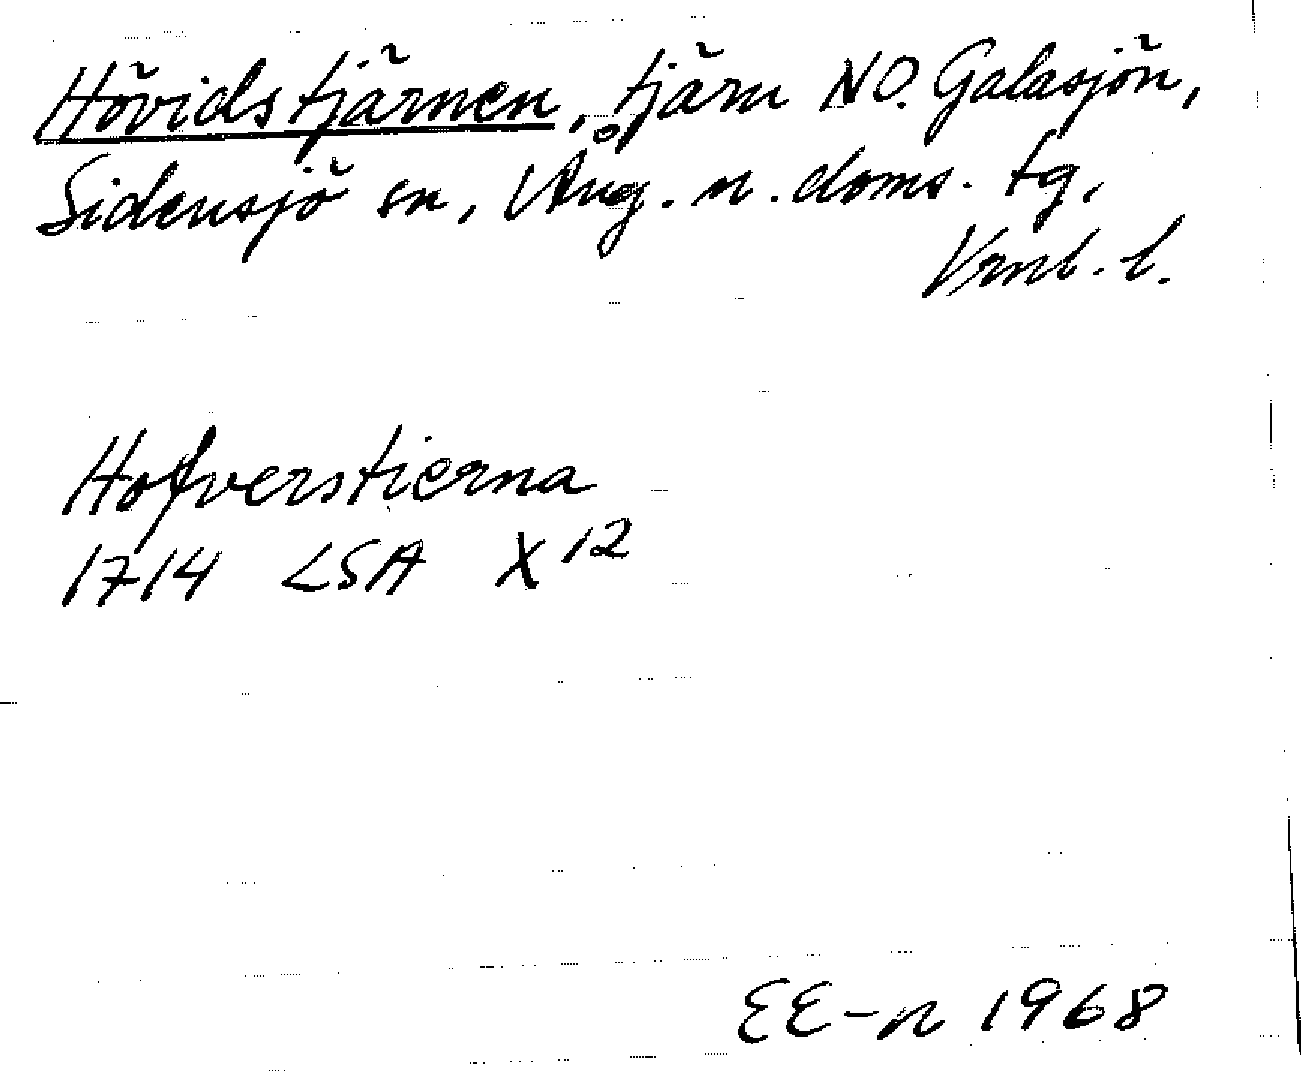 Hövidstjärnen, tjärn NO. Galasjön,
Sidensjö sn, Ång. n. doms. tg,
Vnl. l.
Hofverstierna
1714 LSA X 12
EE-n 1968